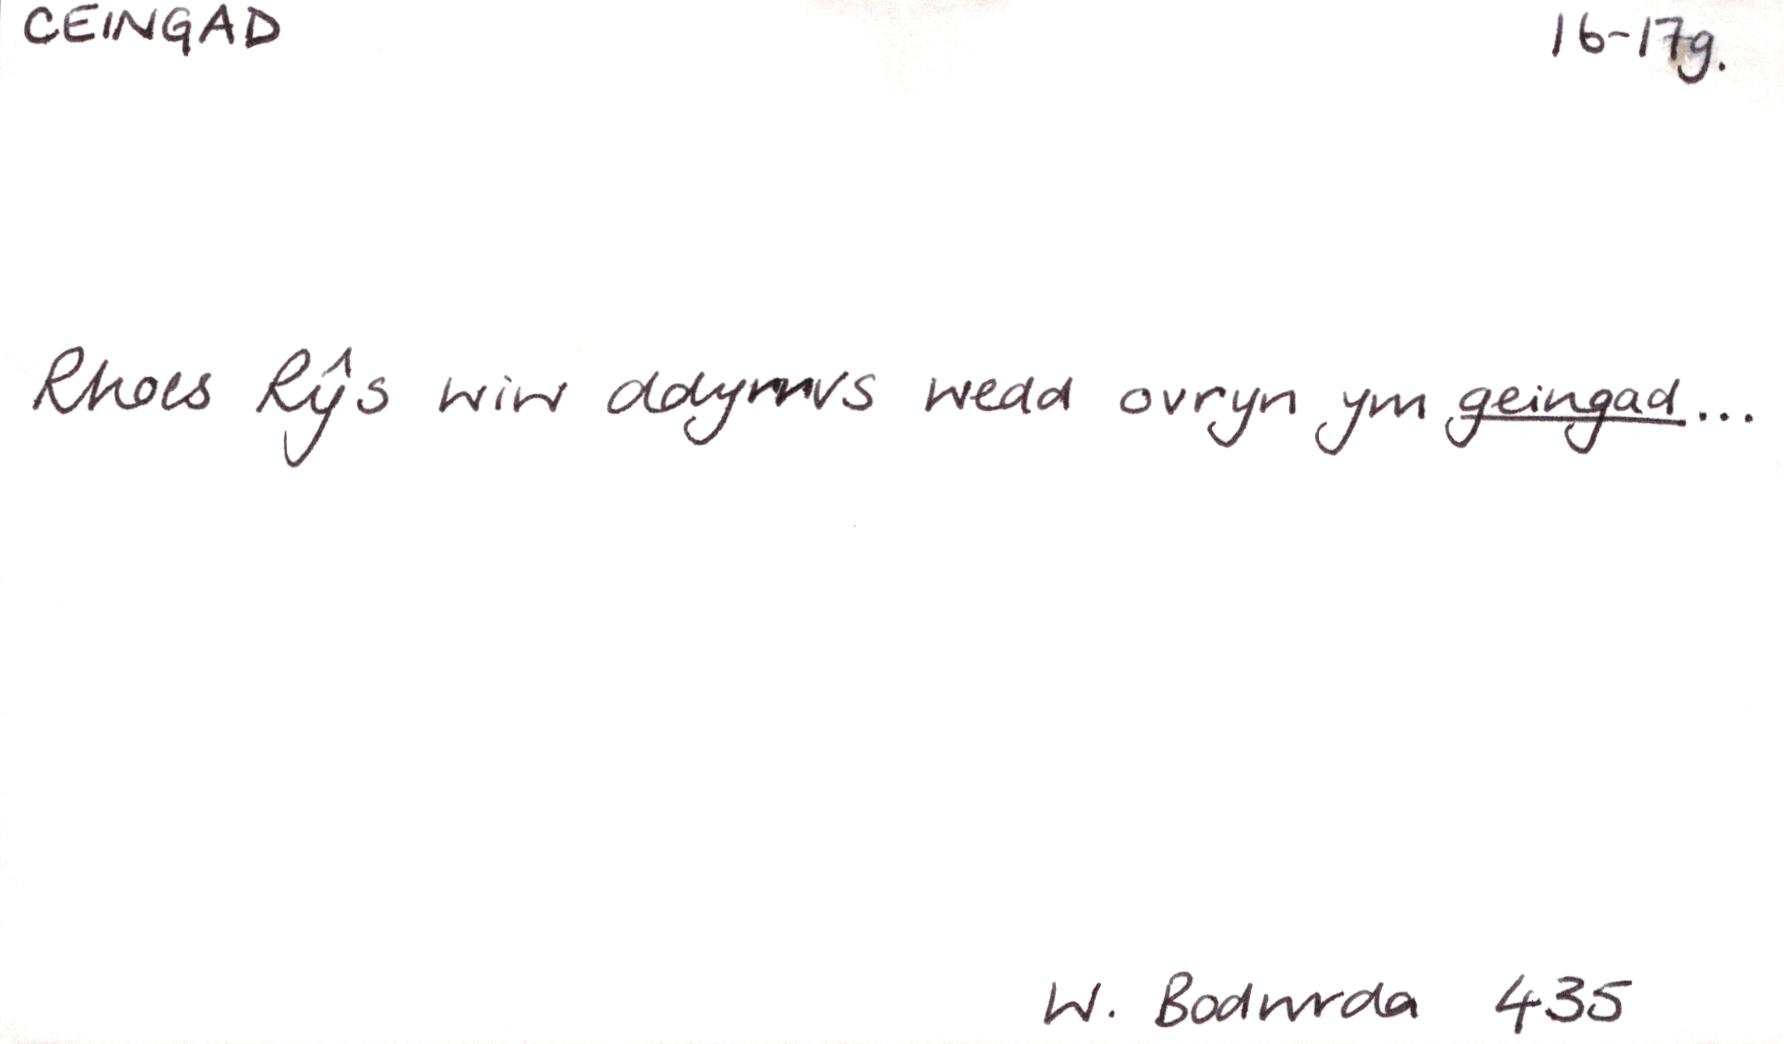 CEINGAD 16-17g.
Rhoes Rŷs wiw ddymvs wedd ovryn ym geingad...
W. Bodwrda 435